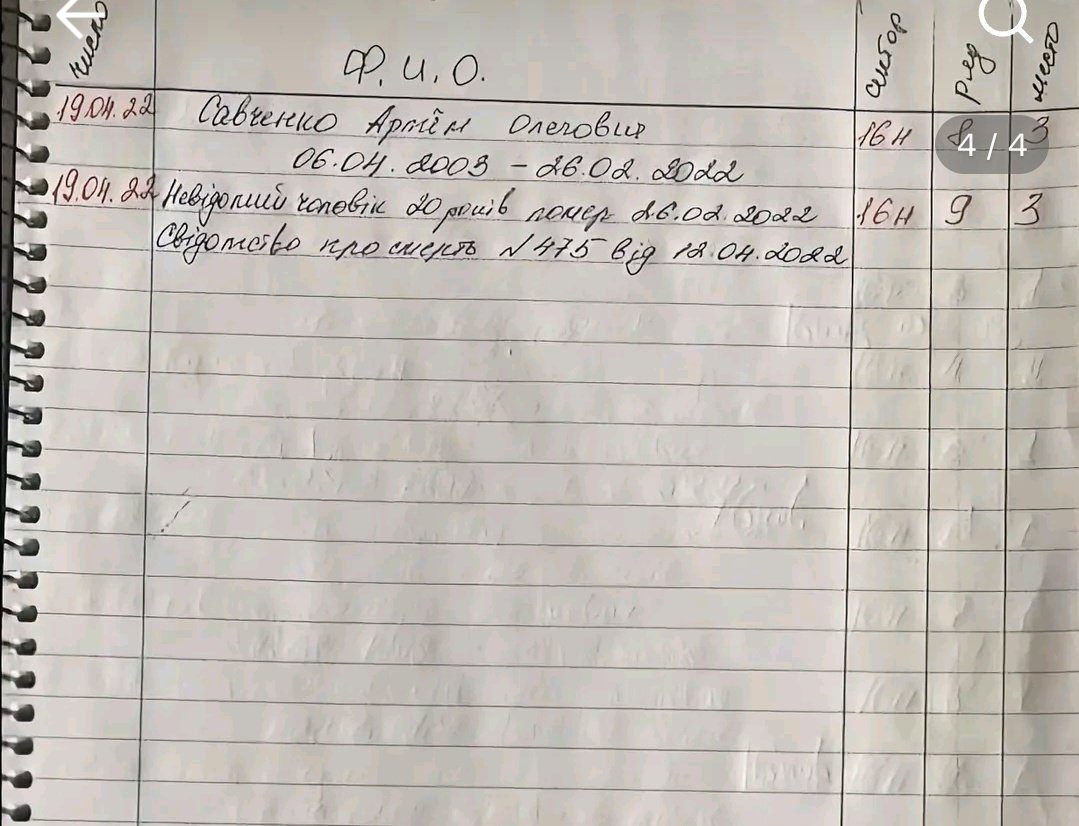 число Ф.И.О. сектор ряд место
19.04.22 Савченко Артём Олегович 16н 8 3
4 / 4
06.04.2003 – 26.02.2022
19.04.22 Невідомий чоловік 20 років помер 26.02.2022 16н 9 3
Свідотство про смерть N 475 від 12.04.2022